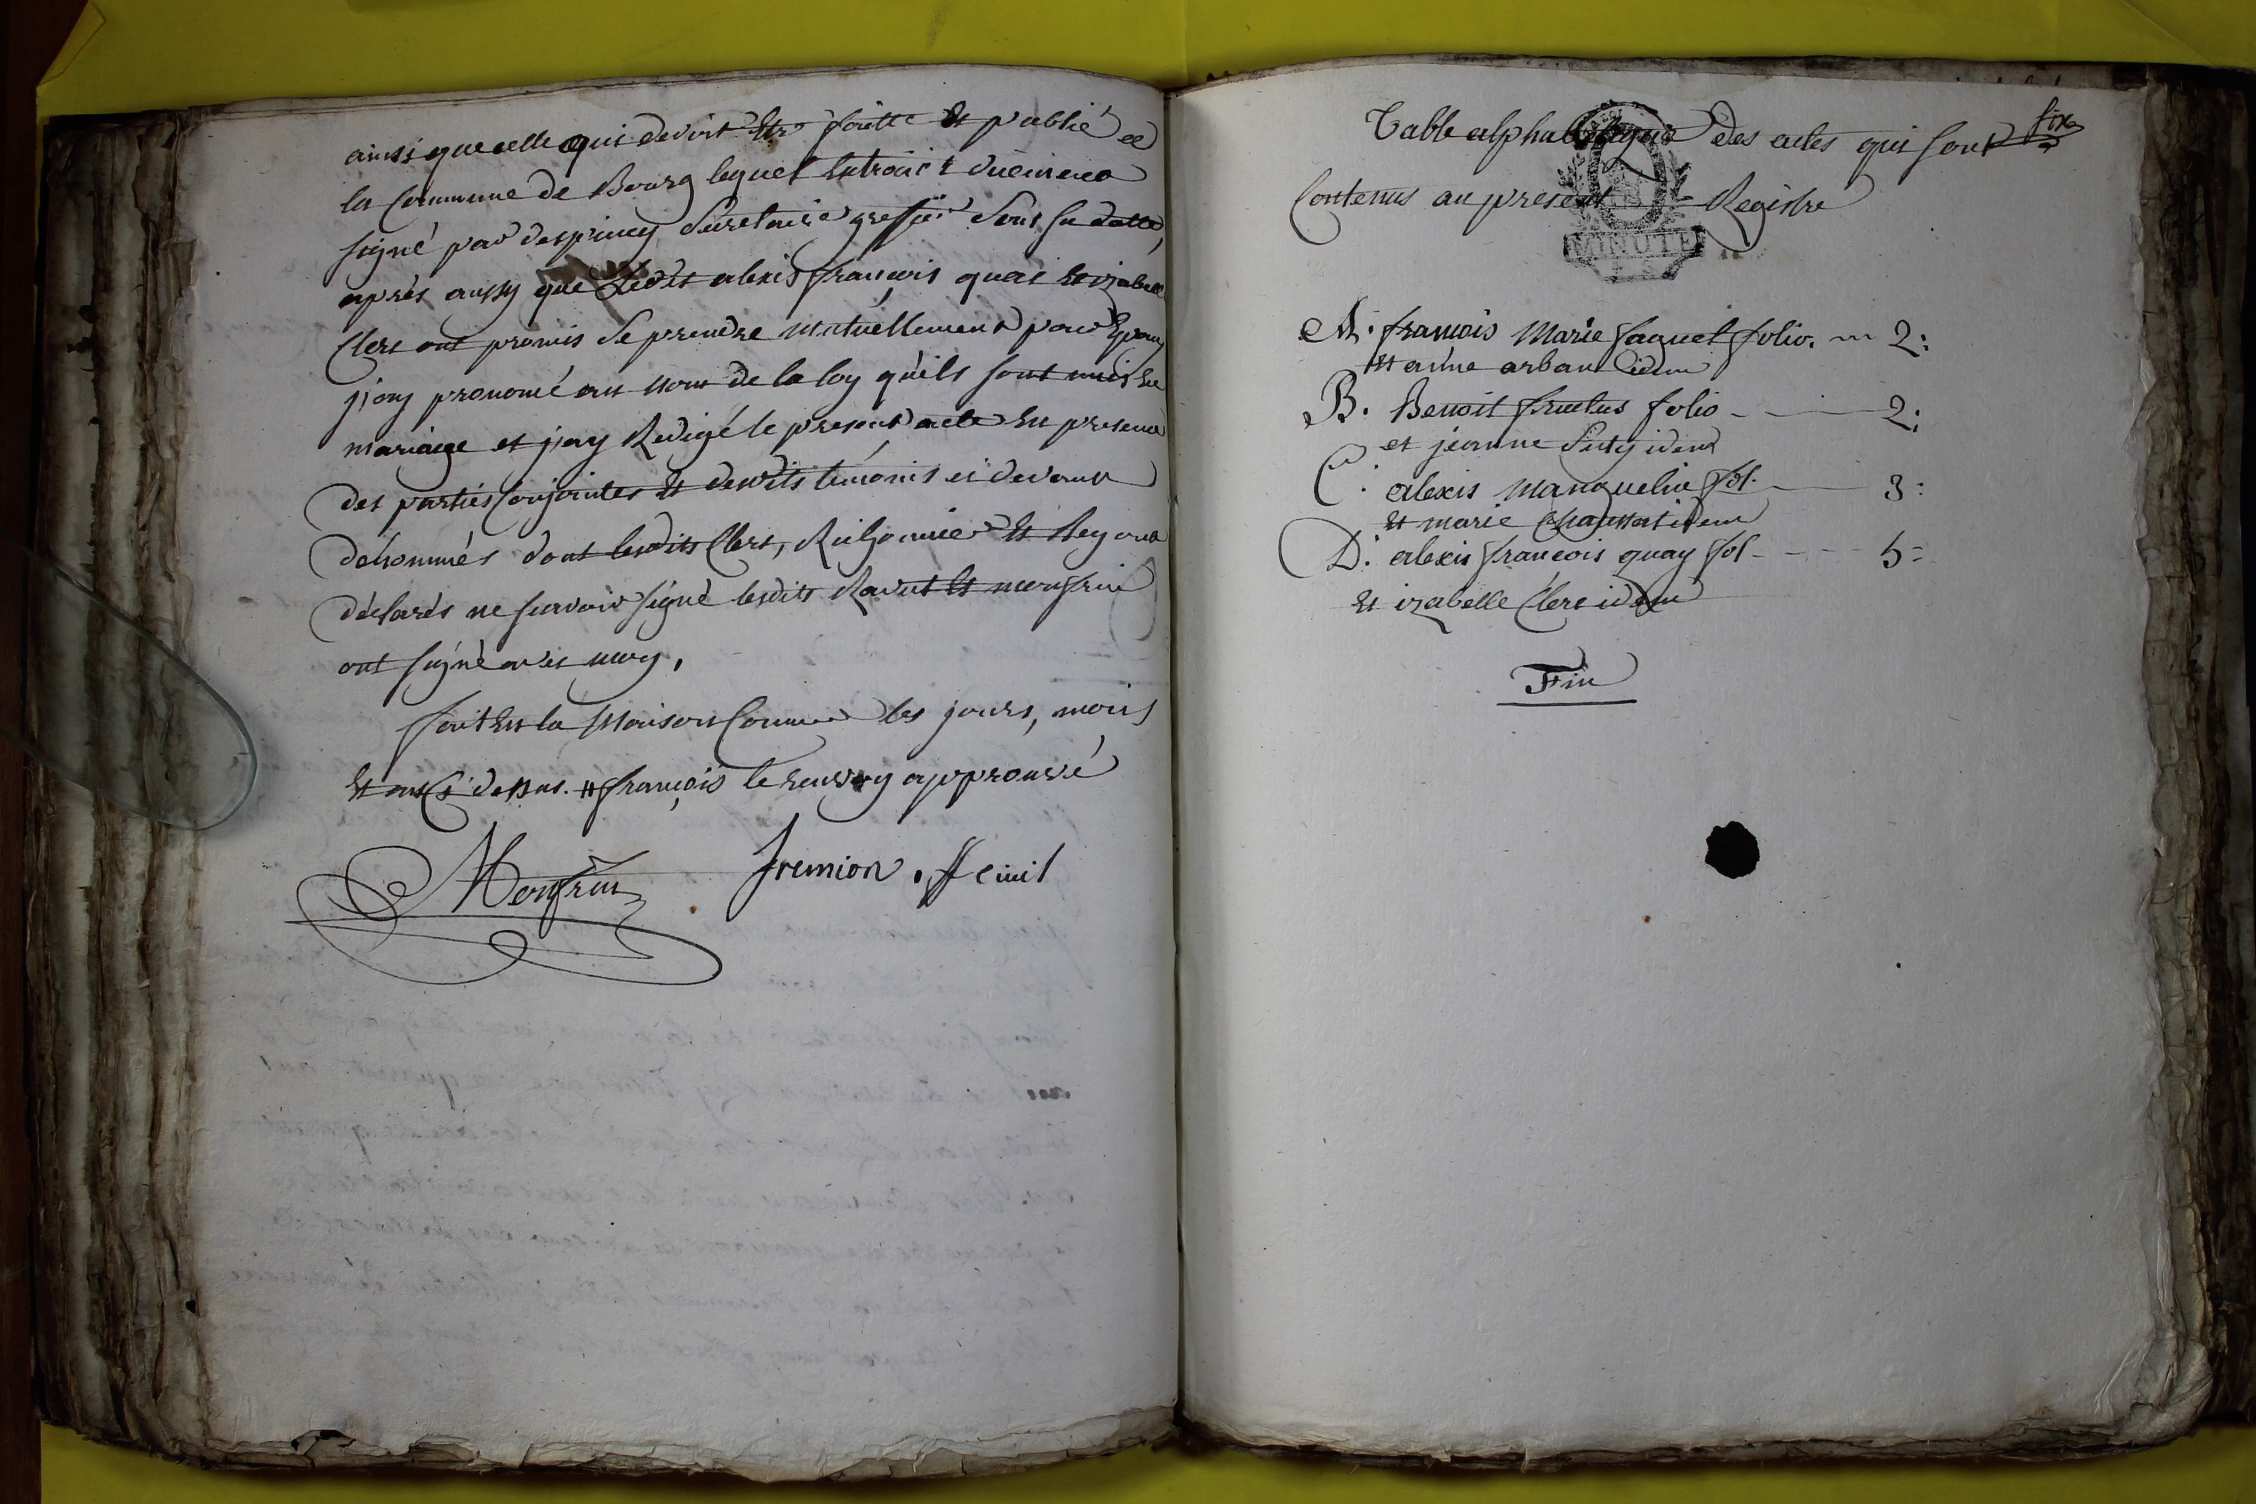 ainsi que celle qui devoit Etre faitte Et publié ee
la Commune de Bourg lequel Extrait
signé par despiney Secretaire greffier sous sa datte,
après aussy que Ledit alexis françois quai Et izabelle
Clerc ont promis de prendre Mutuellement pour Epoux
j'ay prononcé au nom de la loy qu'ils sont unis En
mariage et j'ay Redigé le present acte En presence
des parties Conjointes Et desdits témoins ci devant
dénommés dont lesdits Clerc, Et Reydna
déclarés ne scavoir signé lesdits Ravat Et monfrin
ont signé avec moy,
fait En la Maison Commune les jours, mois
Et an Ci dessus. # françois le renvoy approuvé
Monfrin fremion . off civil
six
Table alphabetique des actes qui sont
Contenus au present Registre
MINUTE
A. françois Marie faguet folio. 2:
Et anne arban idem
B. Benoit fruclus folio 2:
et jeanne Suty idem
C. alexis Manquelin fol. 3:
Et marie Chaussat idem
D. alexis françois quay fol 5=
Et izabelle Clerc idem
Fin